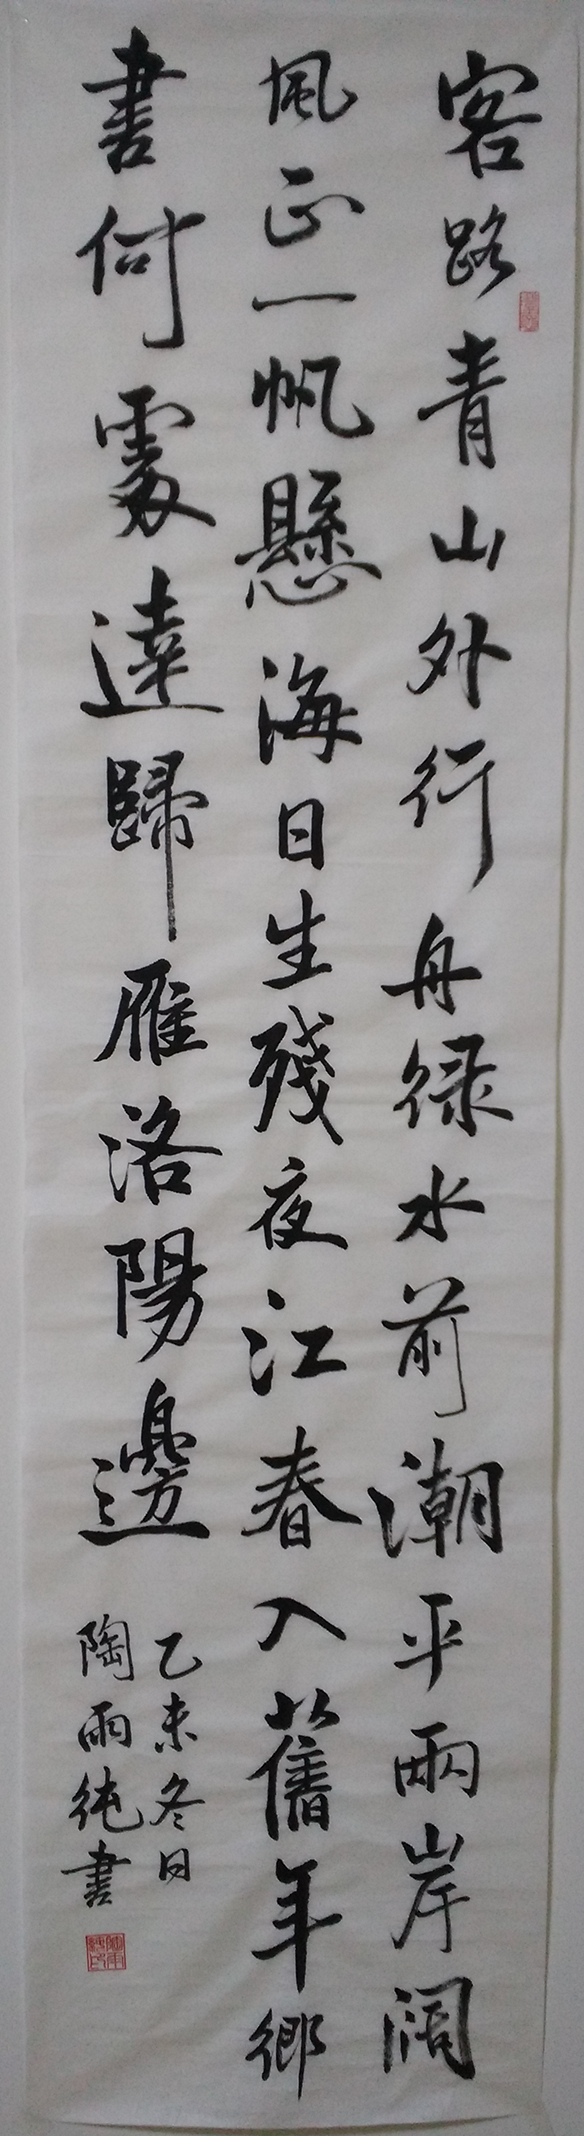 客路青山外行舟绿水前潮平兩岸闊
風正一帆懸海日生殘夜江春入舊年鄉
書何處達歸雁洛陽邊
乙未冬日
陶雨純書